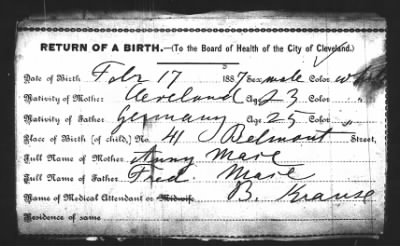 RETURN OF A BIRTH.—(To the Board of Health of the City of Cleveland.)
Date of Birth Febr 17 1887 Sex, male Color white
Nativity of Mother Cleveland Age 23 Color "
Nativity of Father Germany Age 25 Color "
Place of Birth (of child,) No. 41 Belmont Street,
Full Name of Mother Anny Mare
Full Name of Father Fred. Mare
Name of Medical Attendant or Midwife B. Krause
Residence of same